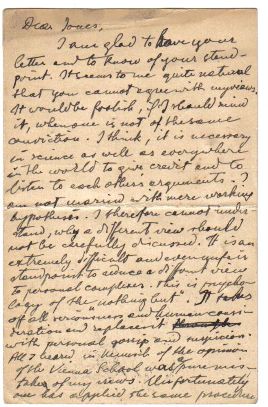 Dear Jones,
I am glad to have your
letter and to know of your stand-
point. It seems to me quite natural
that you cannot agree with my views.
It would be foolish, if I should mind
it, when one is not of the same
conviction. I think, it is necessary
in science as well as everywhere
in the world to give credit and to
listen to each others arguments. I
am not married with mere working
hypotheses. I therefore cannot under-
stand, why a different view should
not be carefully discussed. It is an
extremely difficult and even unfair
standpoint to reduce a different view
to personal complexes. This is psycho-
logy of the "nothing but". It
of all seriousness and human consi-
deration and replaces it
with personal gossip and suspicion.
All I heard in Munich of the opinion
of the Vienna School was pure mis-
takes of my views. Unfortunately
one has applied the same procedure